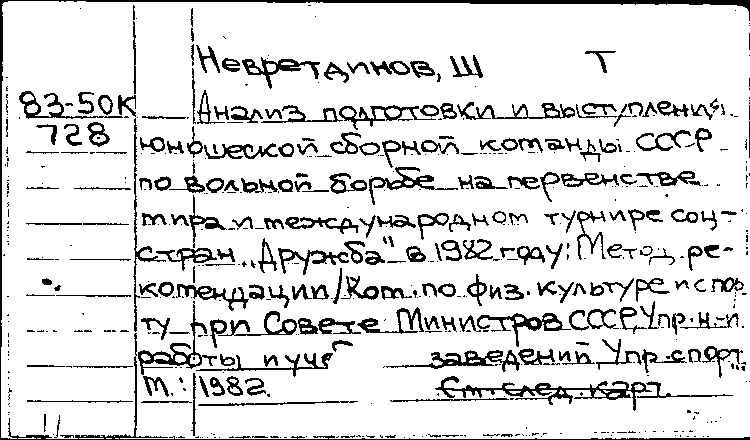 Невретдинов, Ш Т
83-50К Анализ подготовки и выступления
728 юношеской сборной команды СССР
по вольной борьбе на первенстве
мира и международном турнире соц-
стран „Дружба" в 1982 году: Метод. ре-
комендации/Ком. по физ. культуре и спор
ту при Совете Министров СССР, Упр. н.-и.
работы и учеб заведений, Упр. спорт.
М.: 1982. См. след. карт.